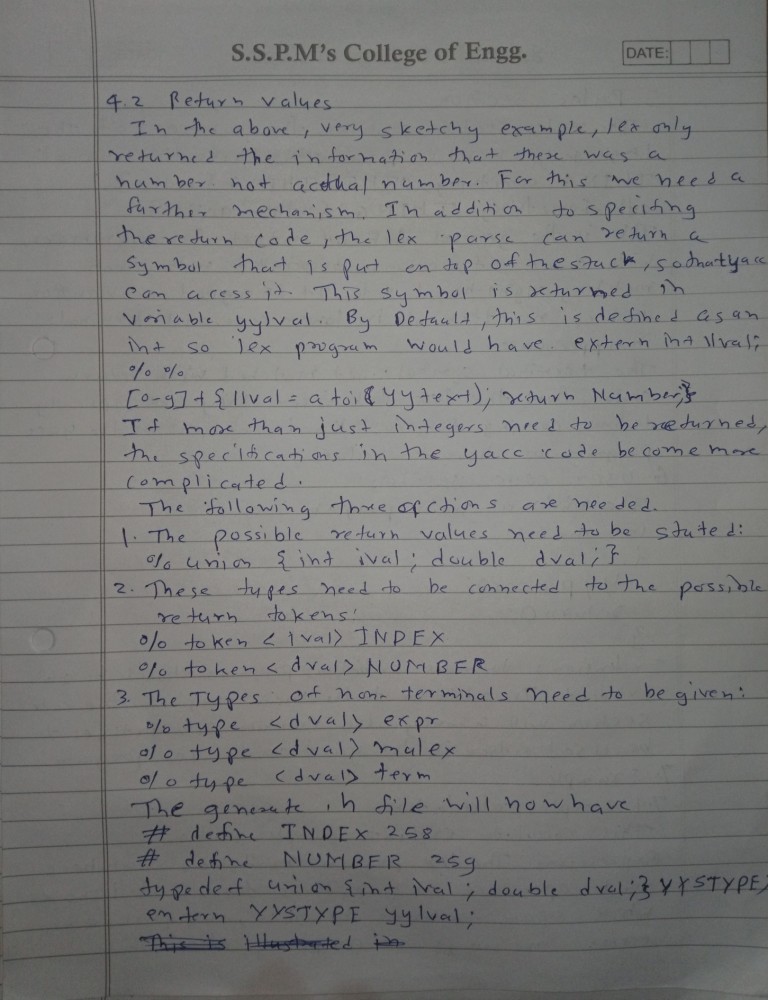 S.S.P.M's College of Engg.
DATE:
4.2 Return values
In the above, very sketchy example, lex only
returned the information that there was a
number not acethal number. For this we need a
further mechanism. In addition to speciting
the return code, the lex parse can return a
symbol that is put on top of the stack, so that yacc
can acess it. This symbol is returned in
variable yylval. By Default, this is defined as an
int so lex program would have extern int llval;
% %
[0-9]+ { llval = atoi(yytext); return Number;}
If more than just integers need to be returned,
the specifications in the yacc code become more
complicated.
The following three actions are needed.
1. The possible return values need to be stated:
% union { int ival; double dval; }
2. These types need to be connected to the possible
return tokens:
% token < ival> INDEX
% token < dval> NUMBER
3. The Types of non-terminals need to be given:
% type <dval> expr
% type <dval> mulex
% type <dval> term
The generate .h file will now have
# define INDEX 258
# define NUMBER 259
typedef union {int ival; double dval;} YYSTYPE;
entern YYSTYPE yylval;
This is illustrated in